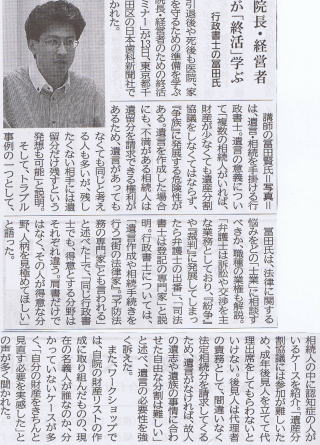 院長・経営者
が「終活」学ぶ
行政書士の冨田氏
引退後や死後も医院、家
を守るための準備を学ぶ
院長・経営者のための終活
ミナー」が13日、東京都千
田区の日本歯科新聞社で
かれた。
講師の冨田賢氏＝写真＝
は、遺言・相続を手掛ける行
政書士。遺言の意義につい
て「複数の相続人がいれば、
財産が少なくても遺産分割
協議をしなくてはならず、
『争族』に発展する危険性が
ある。遺言を作成した場合
にも、不満がある相続人は
遺留分を請求できる権利が
あるため、遺言があっても
なくても同じと考え
る人もあいが、残し
たくない相手には遺
留分だけ残すという
発想も可能」と説明。
そして、トラブル
事例の一つとして、
相続人の中に認知症の人が
いるケースを紹介。「遺産分
割協議には参加が難しいた
め、成年後見人を立てて代
理出席をしてもらわないと
いけない。後見人は代理人
の責務として、間違いなく
法定相続分を請求してくる
ため、遺言がなければ、故人
の遺志や遺族の事情に合わ
せた自由な分割は難しい」
と述べ、遺言の必要性を強
く訴えた。
また、ワークショップで
は、自院の財産リストの作
成に取り組んだものの、現
在の名義人が誰なのか、分
かっていないケースが多
く、「自分の財産をきちんと
見直す必要を実感した」と
の声が多く聞かれた。
冨田氏は、法律に関する
悩みをどの「士業」に相談す
べきか、職種の業種も解説。
「弁護士は訴訟や交渉を主
な業務としており、『紛争』
や『裁判』に発展してしまっ
たら弁護士の出番」、「司法
書士は登記の専門家」と説
明。行政書士については、
「遺言作成や相続手続きを
行う『街の法律家』。『予防法
務の専門家』とも言われる」
と述べた上で、「同じ行政書
士でも、得意とする分野は
それぞれ違う。肩書だけで
はなく、その人が得意な分
野、人柄を見極めてほしい」
と語った。